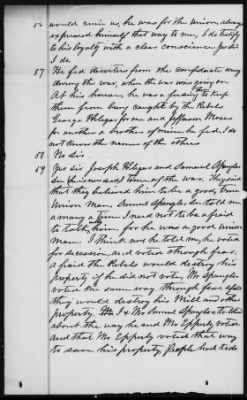 would ruin us, he was for the Union, always
expressed himself that way to me, I do testify
to his loyalty with a clear conscience Yes Sir
I do.
57 He fed deserters from the confederate army
during the war, when the war was going on
At his house, he was a feeding to keep
them from being caught by the Rebels
George Phlegar for one and Jefferson
for another a brother of mine he fed, I do
not know the names of the others
58 No Sir.
59 Yes Sir Joseph Phlegar and Samuel Spangler
time of the war. They said
that they believed him to be a good, true
Union Man, Samuel Spangler told me
a many a time I need not to be afraid
to talk to him for he was a good Union
Man. I think now he told me he voted
for Secession, and voted through fear,
afraid the Rebels would destroy his
property if he did not vote, Mr Spangler
voted the same way through fear
they would destroy his Mill and other
property. I & Mr Samuel Spangler talked
about the way he and Mr Epperly voted
and that Mr Epperly voted that way
to save his property, People had to do